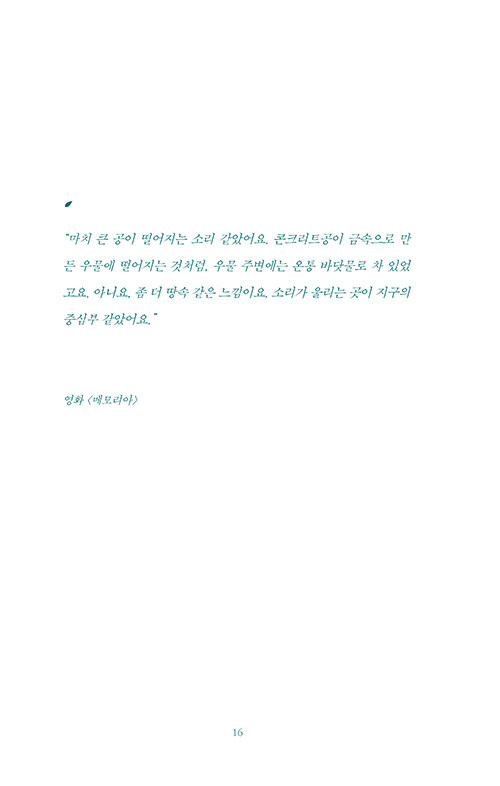 “마치 큰 공이 떨어지는 소리 같았어요. 콘크리트공이 금속으로 만
든 우물에 떨어지는 것처럼, 우물 주변에는 온통 바닷물로 차 있었
고요. 아니요, 좀 더 땅속 같은 느낌이요. 소리가 울리는 곳이 지구의
중심부 같았어요.”
영화 〈메모리아〉
16